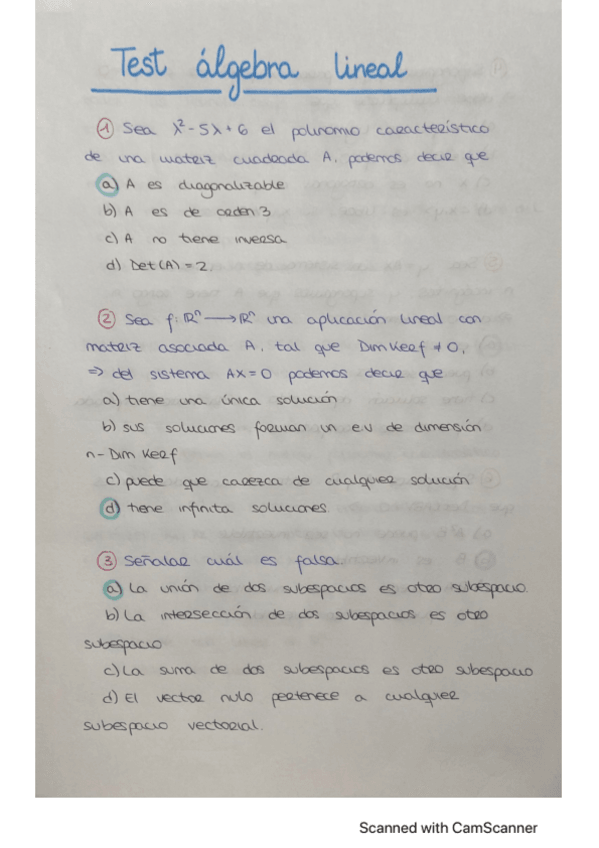 Test álgebra lineal
① Sea λ² - 5λ + 6 el polinomio característico
de una matriz cuadrada A, podemos decir que
a) A es diagonalizable
b) A es de orden 3
c) A no tiene inversa
d) Det(A) = 2.
② Sea f: ℝⁿ → ℝⁿ una aplicación lineal con
matriz asociada A, tal que Dim Ker f ≠ 0,
⇒ del sistema AX = 0 podemos decir que
a) tiene una única solución
b) sus soluciones forman un e.v de dimensión
n - Dim Ker f
c) puede que carezca de cualquier solución
d) tiene infinita soluciones.
③ Señalar cuál es falsa.
a) La unión de dos subespacios es otro subespacio.
b) La intersección de dos subespacios es otro
subespacio
c) La suma de dos subespacios es otro subespacio
d) El vector nulo pertenece a cualquier
subespacio vectorial.
Scanned with CamScanner